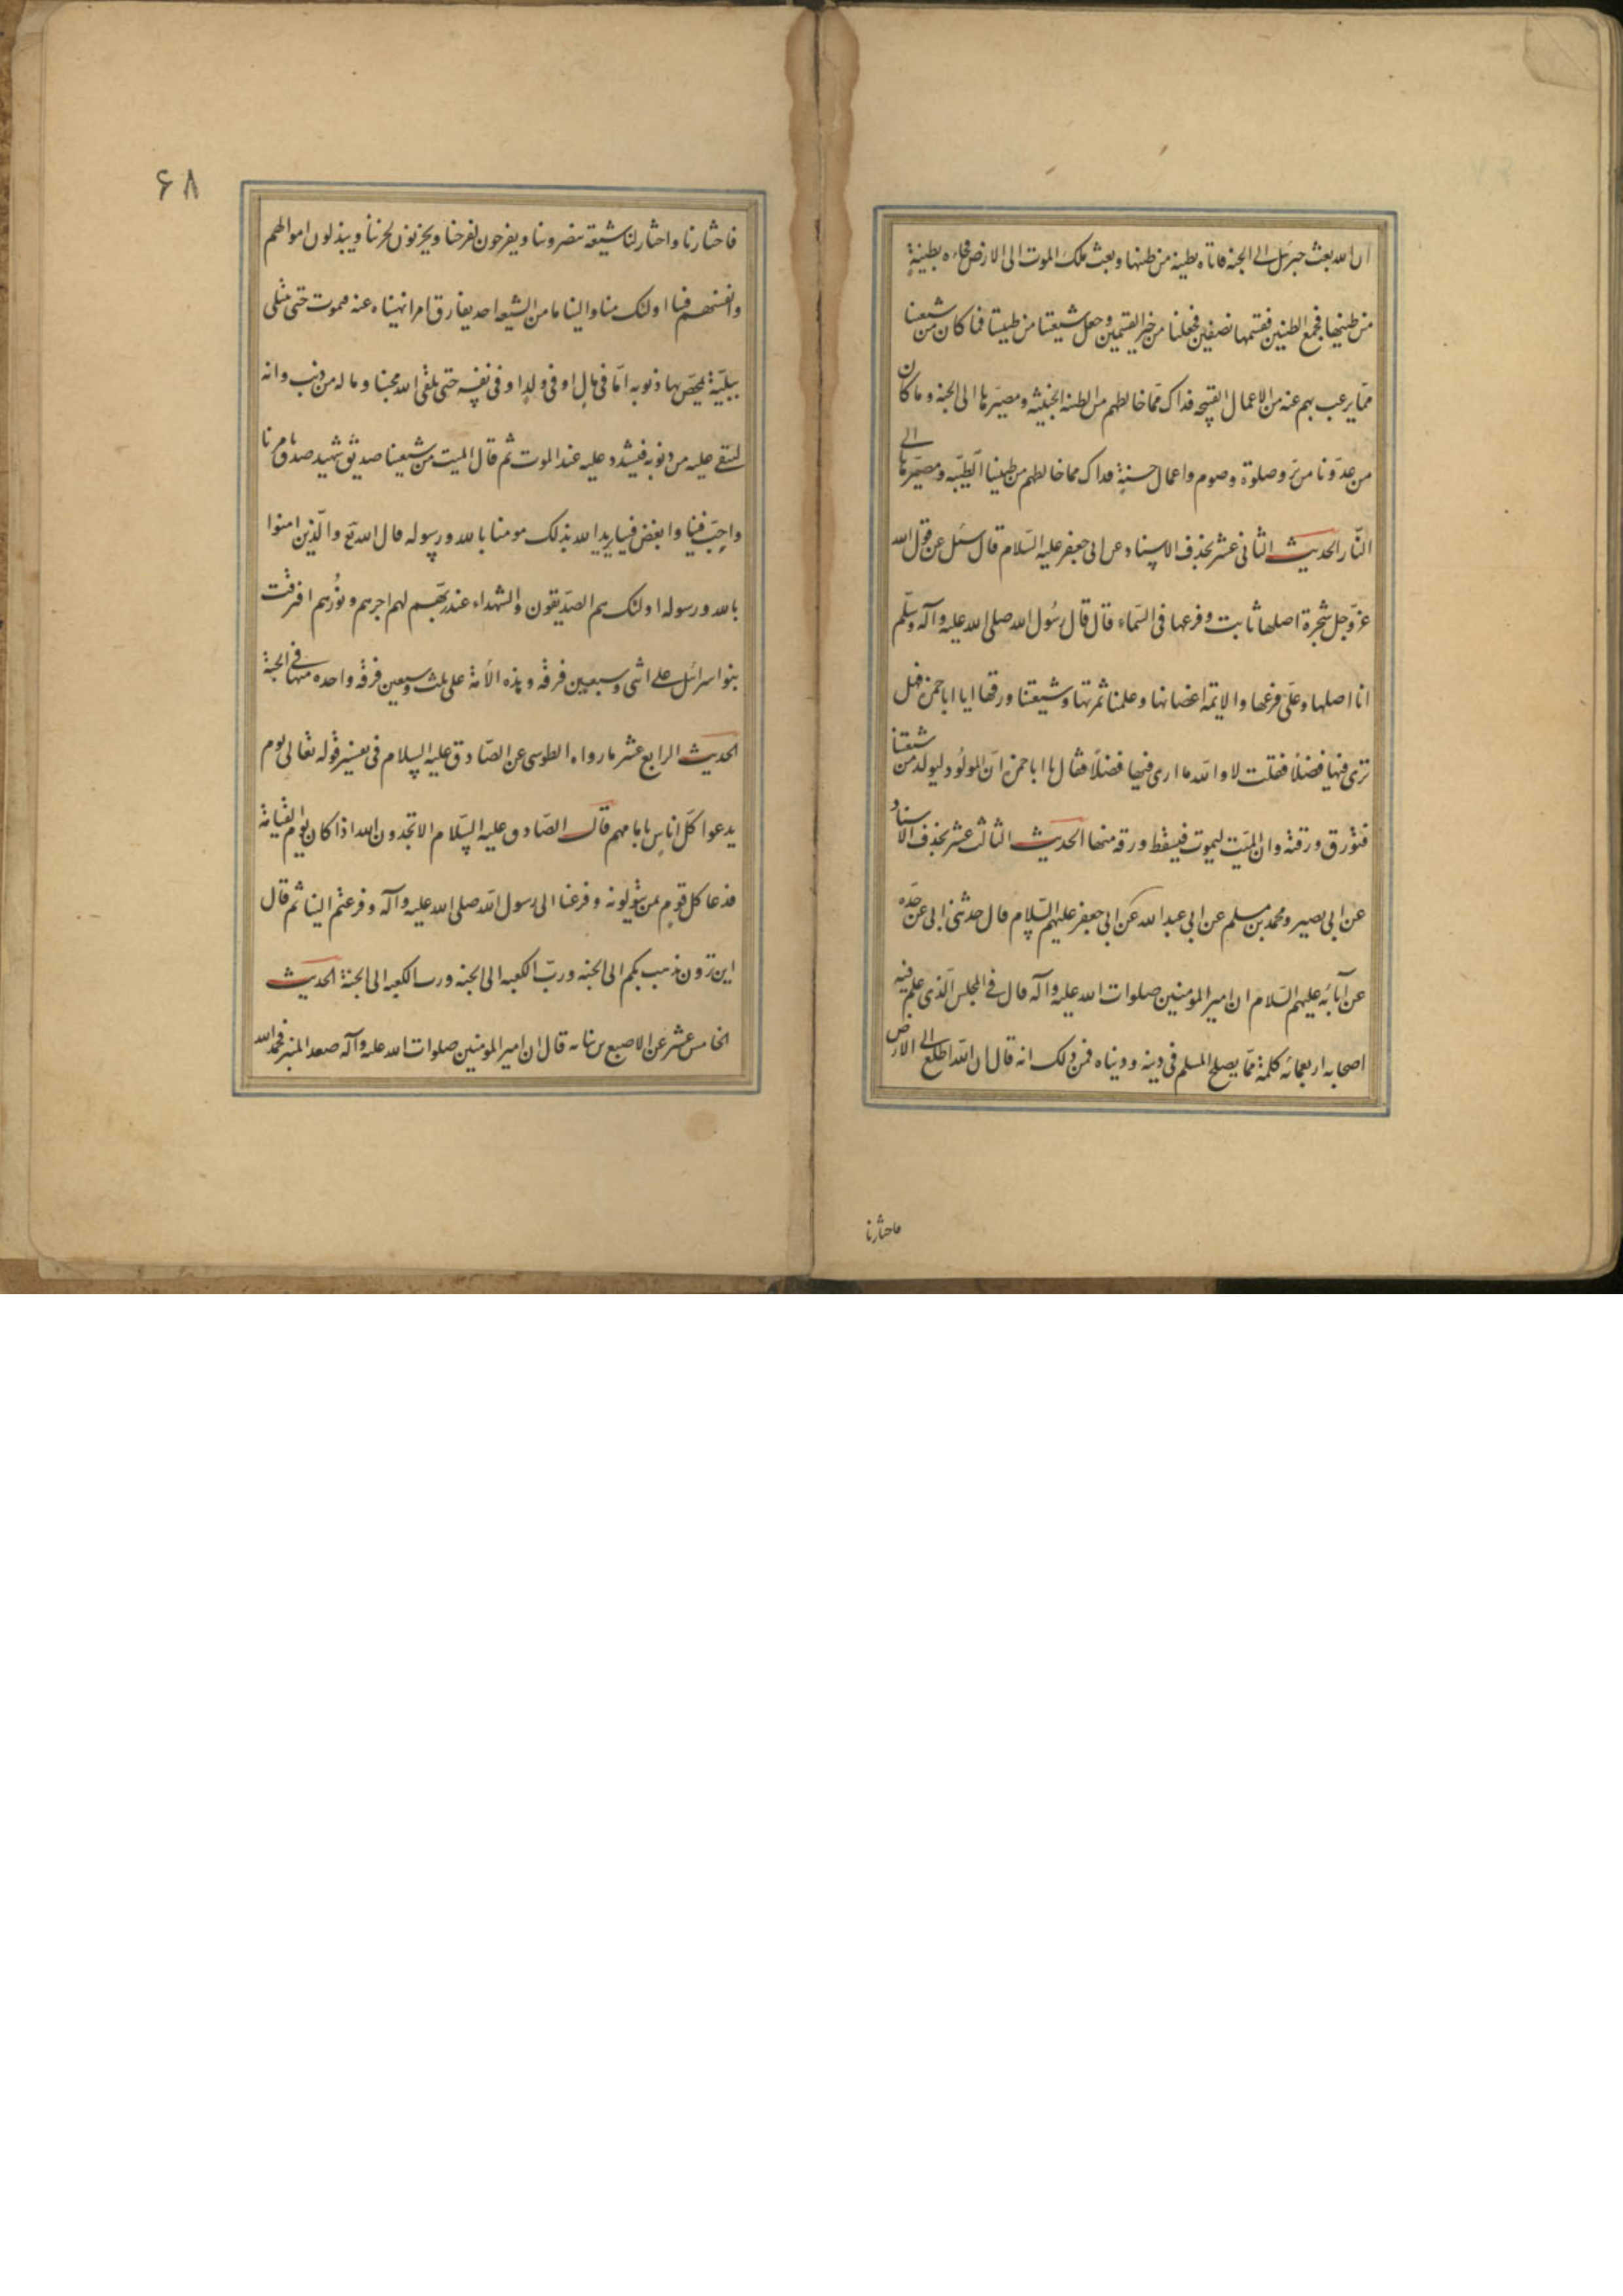 ان الله بعث جبرئيل الى الجنه فاتاه بطينه من طينها وبعث ملك الموت الى الارض فجاءه بطينةٍ
من طينها فجمع الطينين فقسمها نصفين فجعلنا من خير القسمين وجعل شيعتنا من طينتنا فما كان من شيعتنا
ممّا يرغب بهم عنه من الاعمال القبيحه فذاك ممّا خالطهم من الطينه الخبيثه ومصيرها الى الجنه وما كان
من عدوّنا من برّ وصلوة وصوم واعمال حسنةٍ فذاك مما خالطهم من طينتنا الطيّبه ومصيرها الى
النّار الحديث الثانى عشر بحذف الاسناد عن ابى جعفر عليه السّلام قال سئل عن قول الله
عزّ وجل شجرة اصلها ثابت وفرعها فى السّماء قال قال رسُول الله صلى الله عليه وآله وسلّم
انا اصلها وعلى فرعها والايمّة اغصانها وعلمنا ثمرتها وشيعتنا ورقها ايا اباحمزه فهل
ترى فيها فضلاً فقلت لا والله ما ارى فيها فضلاً فقال يا اباحمزه انّ المولُود ليولد من شيعتنا
فتورق ورقة وان الميّت ليموت فيسقط ورقه منها الحديث الثالث عشر بحذف الاسناد
عن ابى بصير ومحمد بن مسلم عن ابى عبدالله عن ابى جعفر عليهم السّلام قال حدثنى ابى عن جدّه
عن آبائه عليهم السّلام ان امير المومنين صلوات الله عليه وآله قال فى المجلس الّذى علم فيه
اصحابه اربعمائه كلمة ممّا يصلح المسلم فى دينه ودنياه فمن ذلك انه قال ان الله اطلع الى الارض
فاختارنا
۶۸
فاختارنا واختار لنا شيعة ينصروننا ويفرحون لفرحنا ويحزنون لحزننا ويبذلون اموالهم
وانفسهم فينا اولئك منا والينا ما من الشيعه احد يفارق امرا نهيناه عنه فيموت حتى يبتلى
ببليّة يمحّص بها ذنوبه امّا فى مالٍ او فى ولدٍ او فى نفسه حتى يلقى الله محبنا وما له من ذنب وانه
ليبقى عليه من ذنوبه فيشدد عليه عند الموت ثم قال الميت من شيعتنا صديق شهيد صدق بامرنا
واحبّ فينا وابغض فينا يريد الله بذلك مومنا بالله ورسوله قال الله تع والّذين امنوا
بالله ورسوله اولئك هم الصدّيقون والشهداء عند ربّهم لهم اجرهم ونُورهم افترقت
بنو اسرائيل على اثنى وسبعين فرقه وهذه الامة على ثلث وسبعين فرقه واحده منها فى الجنة
الحديث الرابع عشر ما رواه الطوسى عن الصّادق عليه السلام فى تفسير قوله تعالى يوم
يدعوا كلّ اناس بامامهم قال الصّادق عليه السّلام الا تحمدون الله اذا كان يوم القيامة
فدعا كل قوم بمن يتولونه وفزعنا الى رسول الله صلى الله عليه وآله وفزعتم الينا ثم قال
اين ترون نذهب بكم الى الجنه وربّ الكعبه الى الجنه ورب الكعبه الى الجنة الحديث
الخامس عشر عن الاصبغ بن نباته قال ان امير المومنين صلوات الله عليه وآله صعد المنبر فحمد الله